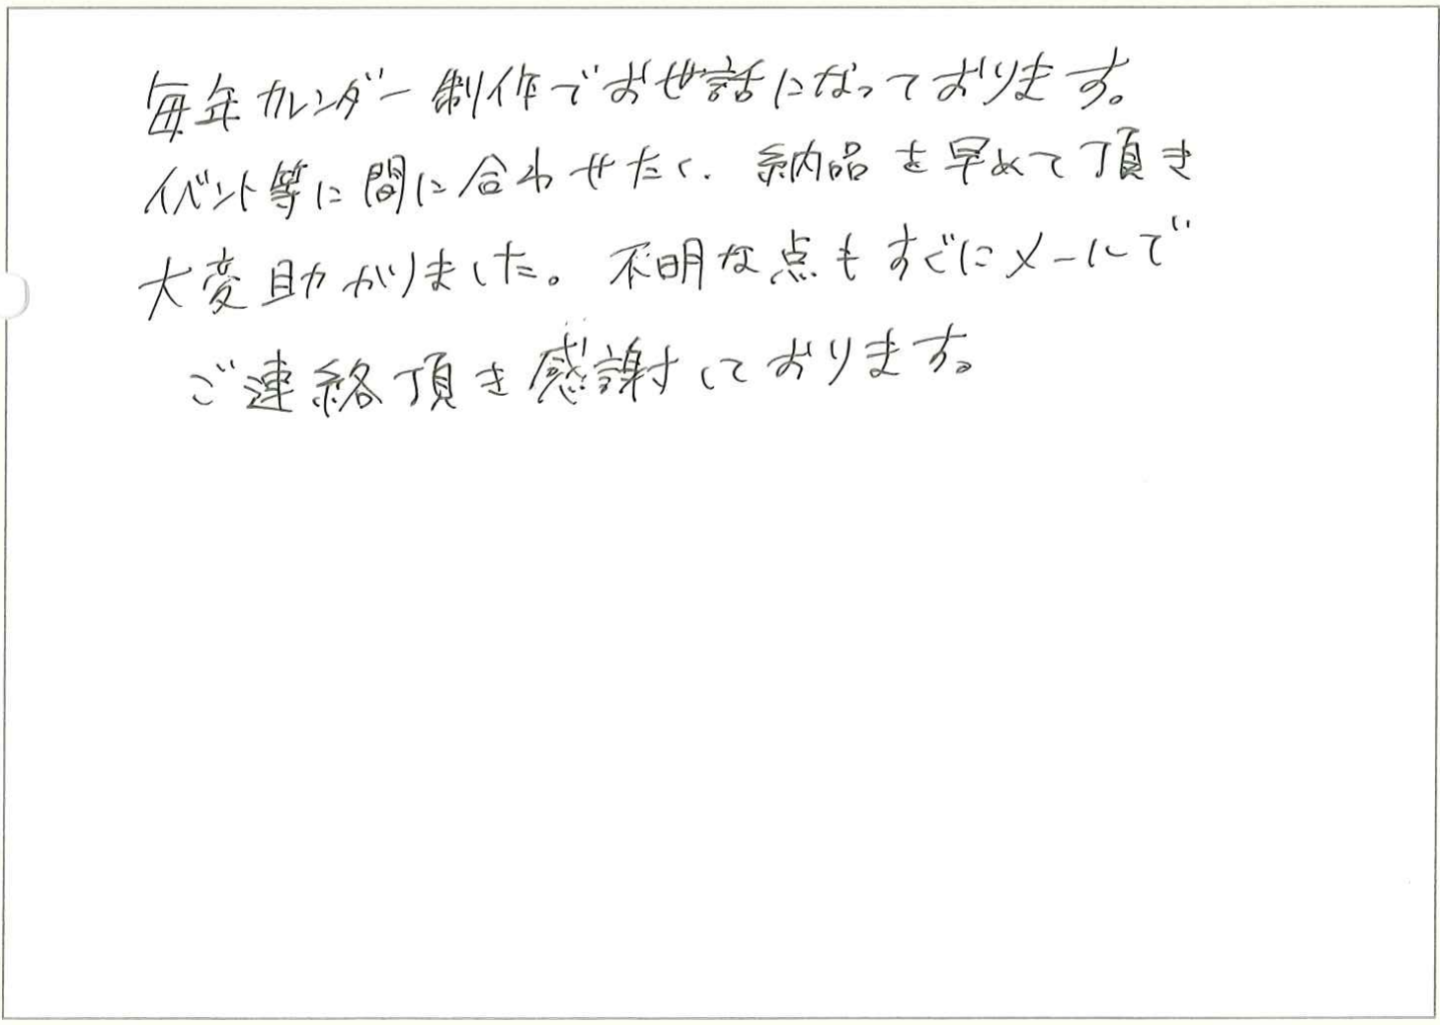 毎年カレンダー制作でお世話になっております。
イベント等に間に合わせたく、納品を早めて頂き
大変助かりました。不明な点もすぐにメールで
ご連絡頂き感謝しております。